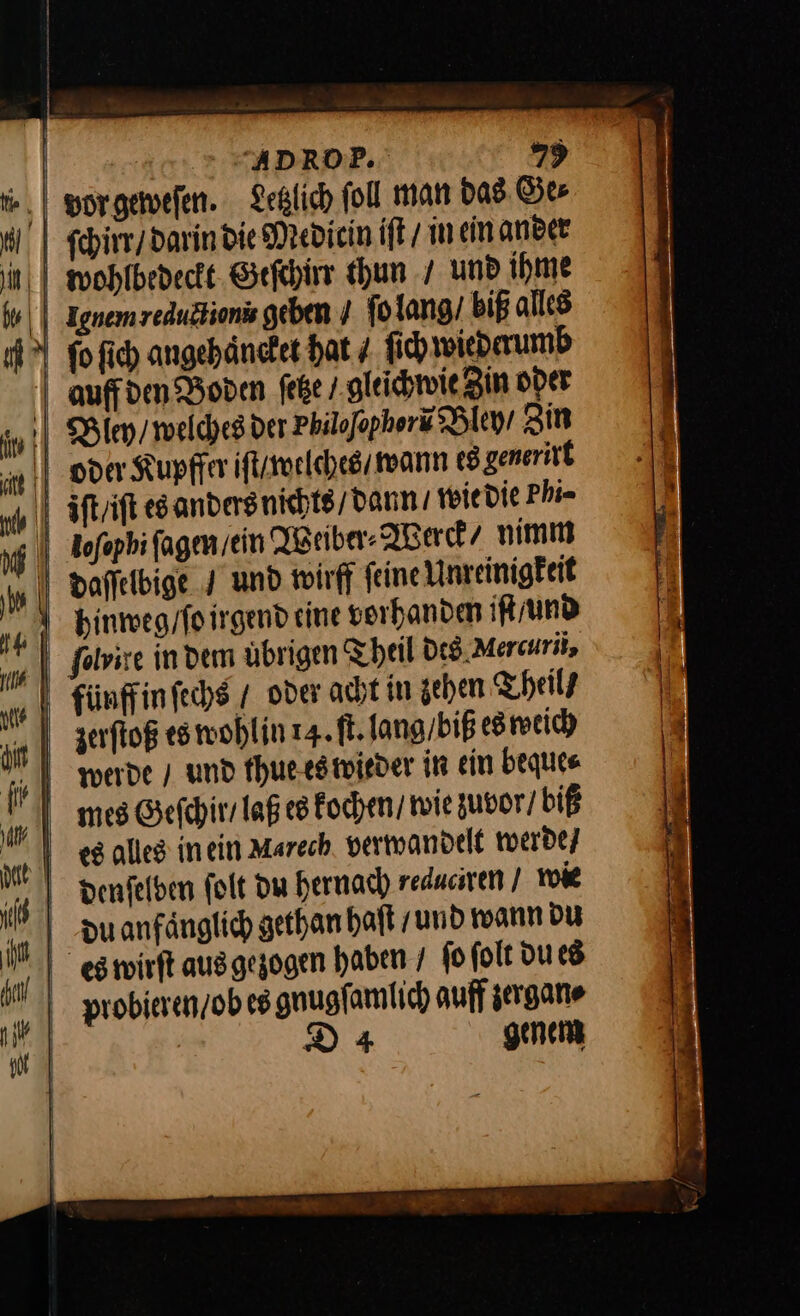 ADROP. 79
vor geweſen. Letzlich ſoll man das Ge⸗
ſchirr / darin die Medicin iſt / in ein ander
wohlbedeckt Geſchirr thun / und ihme
Ignem reductionis geben / ſo lang / biß alles
ſo ſich angehåncket hat / ſich wiederumb
auff den Boden ſetze / gleichwie Zin oder
Bley / welches der Philoſophorū Bley / Zin
oder Kupffer iſt / welches / wann es generirt
iſt / iſt es anders nichts / dann / wie die Phi-
loſophi ſagen / ein Weiber⸗Werck / nimm
daſſelbige / und wirff ſeine Unreinigkeit
hinweg / ſo irgend eine vorhanden iſt / und
ſolvire in dem uͤbrigen Theil des Mercurii,
fünff in ſechs / oder acht in zehen Theil /
zerſtoß es wohl in 14. ſt. lang / biß es weich
werde / und thue es wieder in ein beque⸗
mes Geſchir / laß es kochen / wie zuvor / biß
es alles in ein Marech verwandelt werde /
denſelben ſolt du hernach reduciren / wie
du anfånglich gethan haſt / und wann du
es wirſt aus gezogen haben / ſo ſolt du es
probieren / ob es gnugſamlich auff zergan⸗
D 4 genem